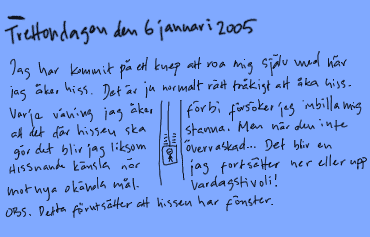 Trettondagen den 6 januari 2005
Jag har kommit på ett knep att roa mig själv med när
jag åker hiss. Det är ju normalt rätt tråkigt att åka hiss.
Varje våning jag åker förbi försöker jag inbilla mig
att det där hissen ska stanna. Men när den inte
gör det blir jag liksom överraskad... Det blir en
hissnande känsla när jag fortsätter ner eller upp
mot nya okända mål. Vardagstivoli!
OBS. Detta förutsätter att hissen har fönster.